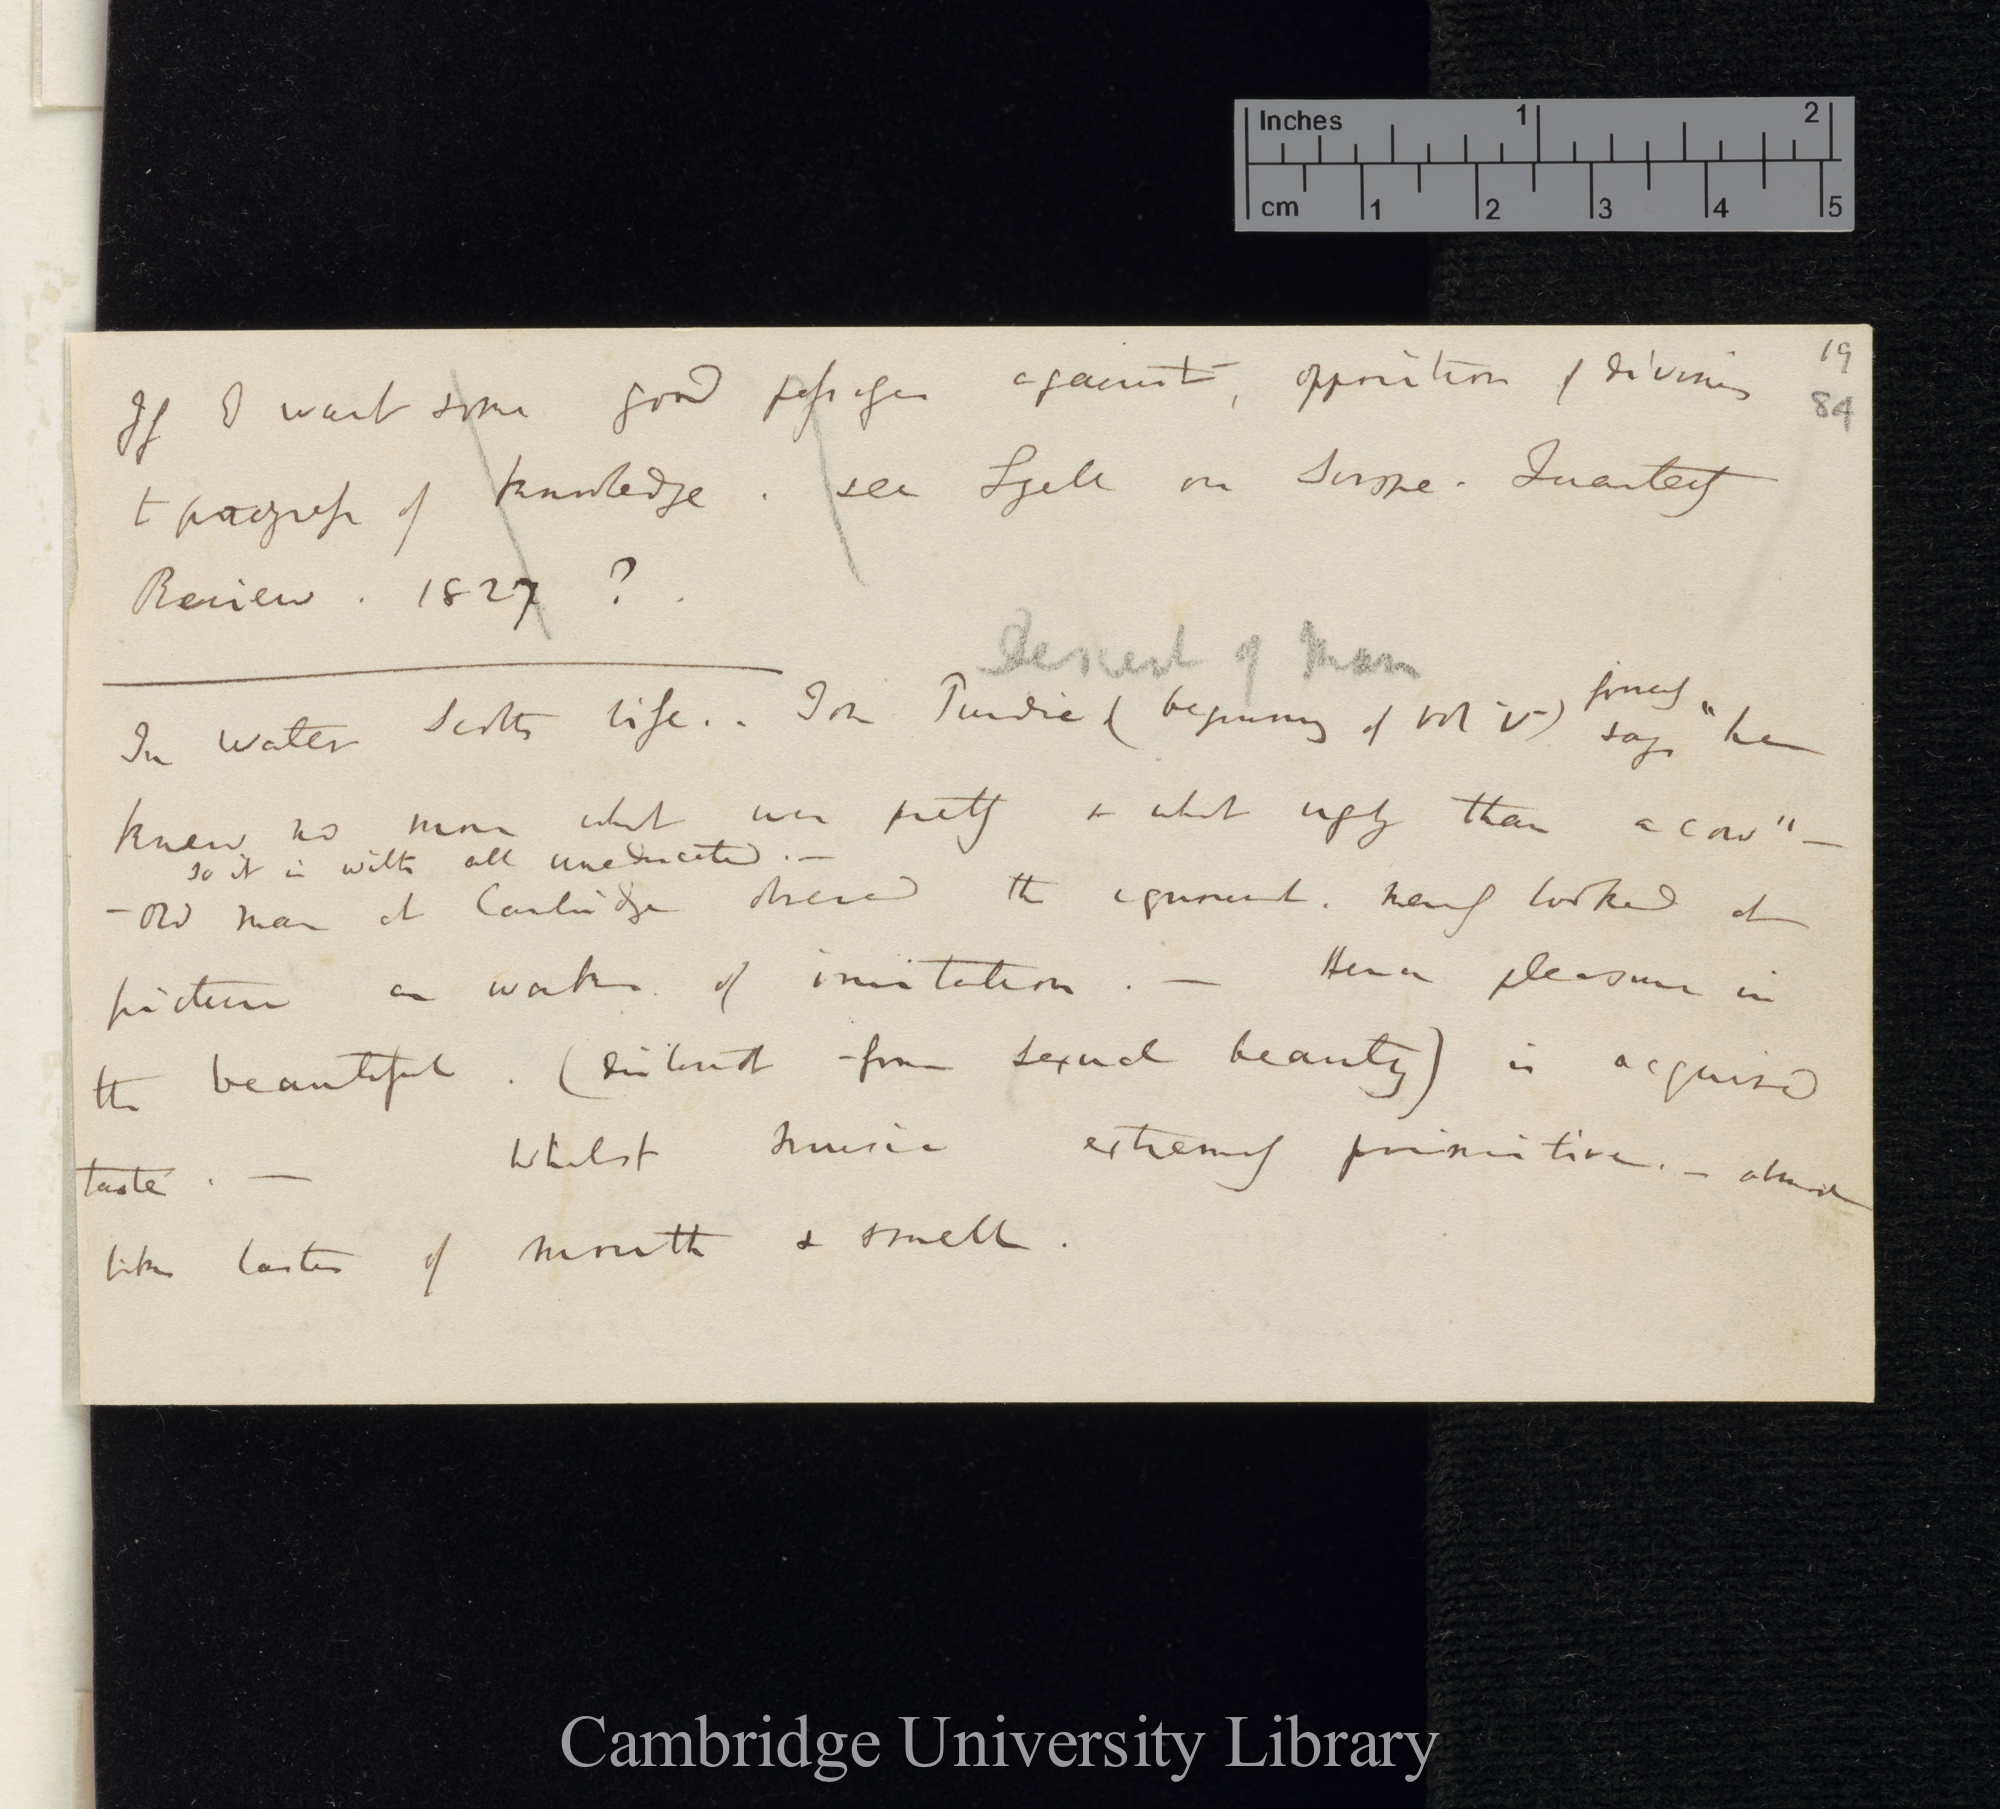 Inches 1 2
cm 1 2 3 4 5
19
84
If I want some good passages against, opposition of divines
t progress of knowledge. see Lyell on Scrope. Quarterly
Review. 1827 ?.
Descent of Man
In Water Scotts life.. Tom Purdie (beginning of vol V) formerly says "he
knew no more what was pretty & what ugly than a cow" —
so it is with all uneducated. —
— Old man at Cambridge observed the ignorant. merely looked at
picture as works of imitation. — Hence pleasure in
the beautiful. (distinct from sexual beauty) is acquired
taste. — Whilst music extremely primitive. — almost
like tastes of mouth & smell.
Cambridge University Library